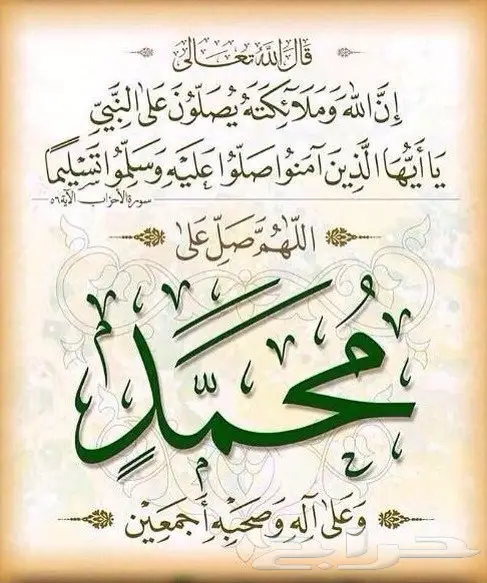 قَالَ اللَّهُ تَعَالَى
إِنَّ اللَّهَ وَمَلَائِكَتَهُ يُصَلُّونَ عَلَى النَّبِيِّ
يَا أَيُّهَا الَّذِينَ آمَنُوا صَلُّوا عَلَيْهِ وَسَلِّمُوا تَسْلِيمًا
سورة الأحزاب الآية ٥٦
اللَّهُمَّ صَلِّ عَلَى
مُحَمَّدٍ
وَعَلَى آلِهِ وَصَحْبِهِ أَجْمَعِين
حراج